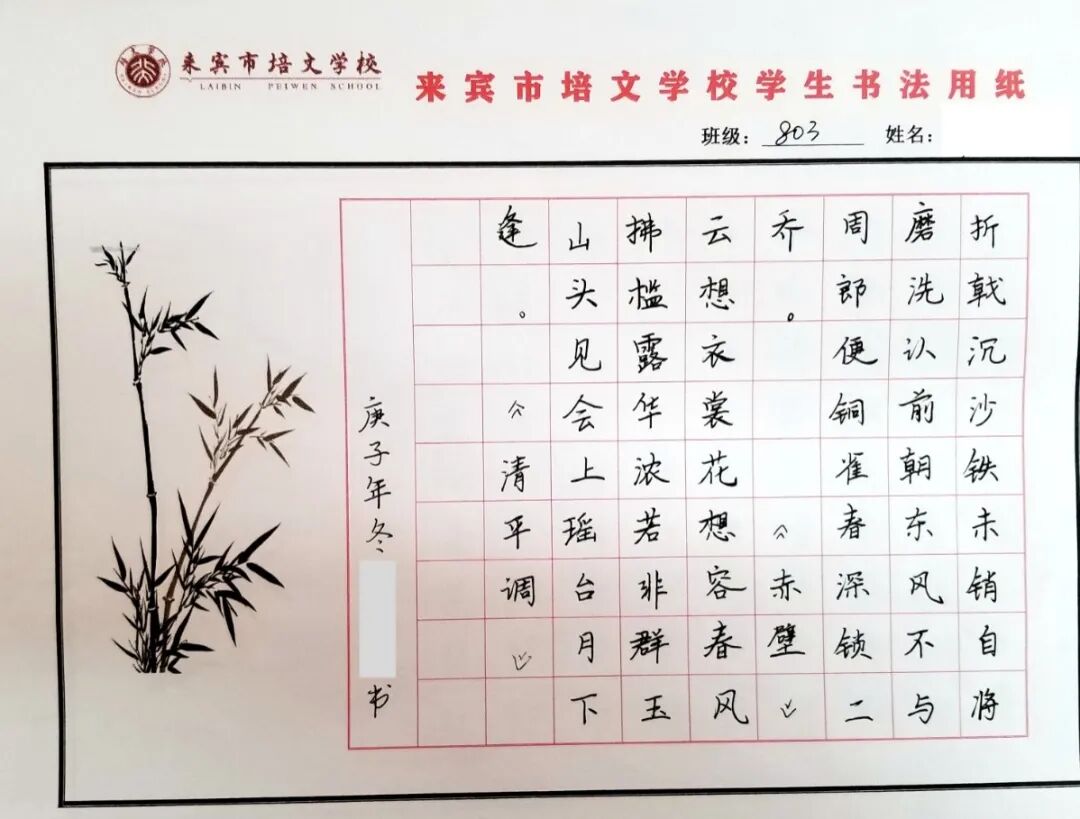 来宾市培文学校
LAIBIN PEIWEN SCHOOL
来宾市培文学校学生书法用纸
班级：803 姓名：
折戟沉沙铁未销自将
磨洗认前朝东风不与
周郎便铜雀春深锁二
乔。《赤壁》
云想衣裳花想容春风
拂槛露华浓若非群玉
山头见会上瑶台月下
逢。《清平调》
庚子年冬 书